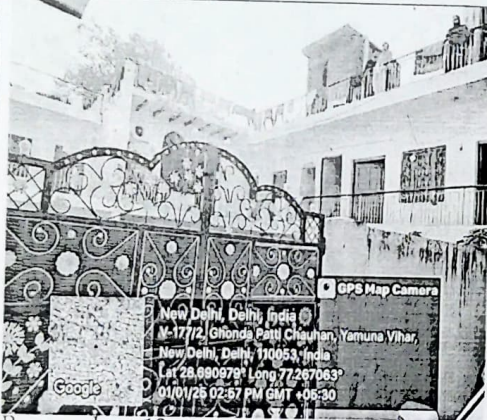 GPS Map Camera
New Delhi, Delhi, India
V-177/2, Ghonda Patti Chauhan, Yamuna Vihar,
New Delhi, Delhi, 110053, India
Lat 28.690979° Long 77.267063°
01/01/25 02:57 PM GMT +05:30
Google